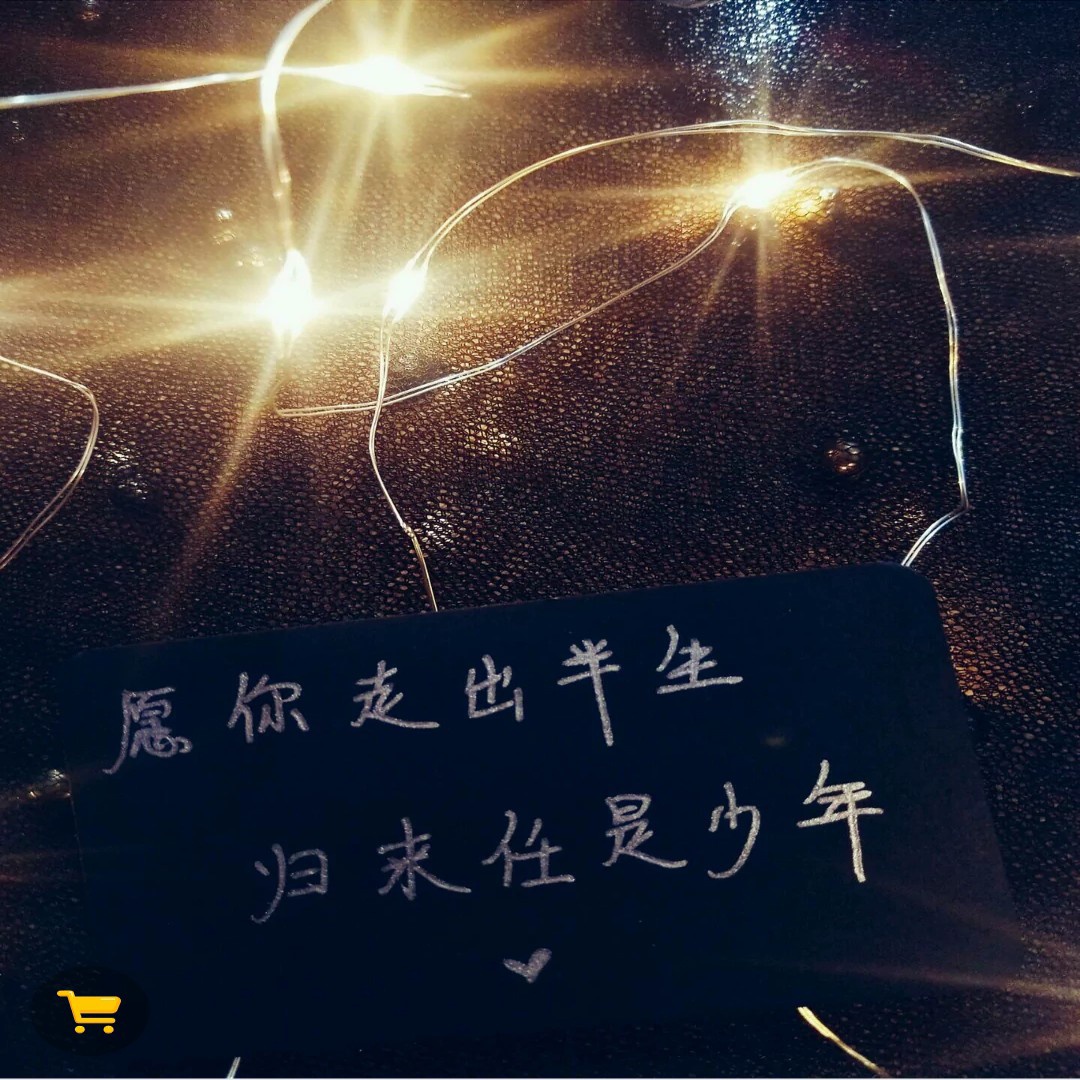 愿你走出半生
归来任是少年